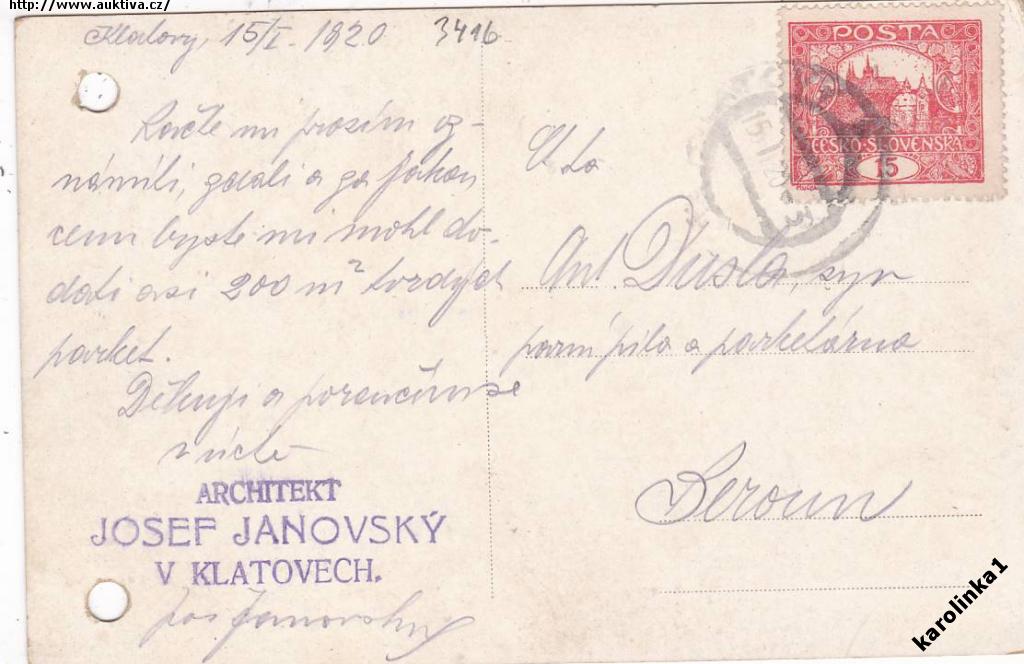 http://www.auktiva.cz/
Klatovy, 15/I. 1920 3416
Račte mi prosím oz-
námiti, zdali a za jakou
cenu byste mi mohl do-
dati asi 200 m² tvrdých
parket.
Děkuji a poroučím se
v úctě
ARCHITEKT
JOSEF JANOVSKÝ
V KLATOVECH.
Jos Janovský
POSTA
ČESKO-SLOVENSKA
15
Ant. Dusla, syn
parní pila a parketárna
Beroun
karolinka1